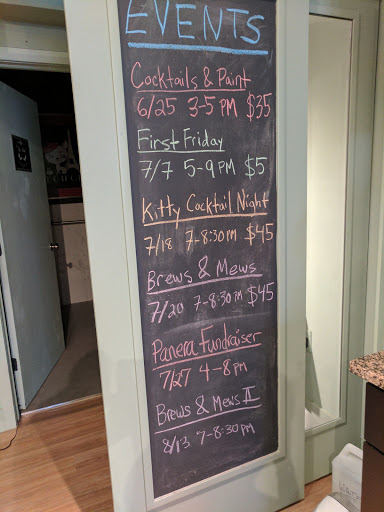 EVENTS
Cocktails & Paint
6/25 3-5 PM $35
First Friday
7/7 5-9 PM $5
Kitty Cocktail Night
7/18 7-8:30PM $45
Brews & Mews
7/20 7-8:30PM $45
Panera Fundraiser
7/27 4-8PM
Brews & Mews II
8/13 7-8:30PM